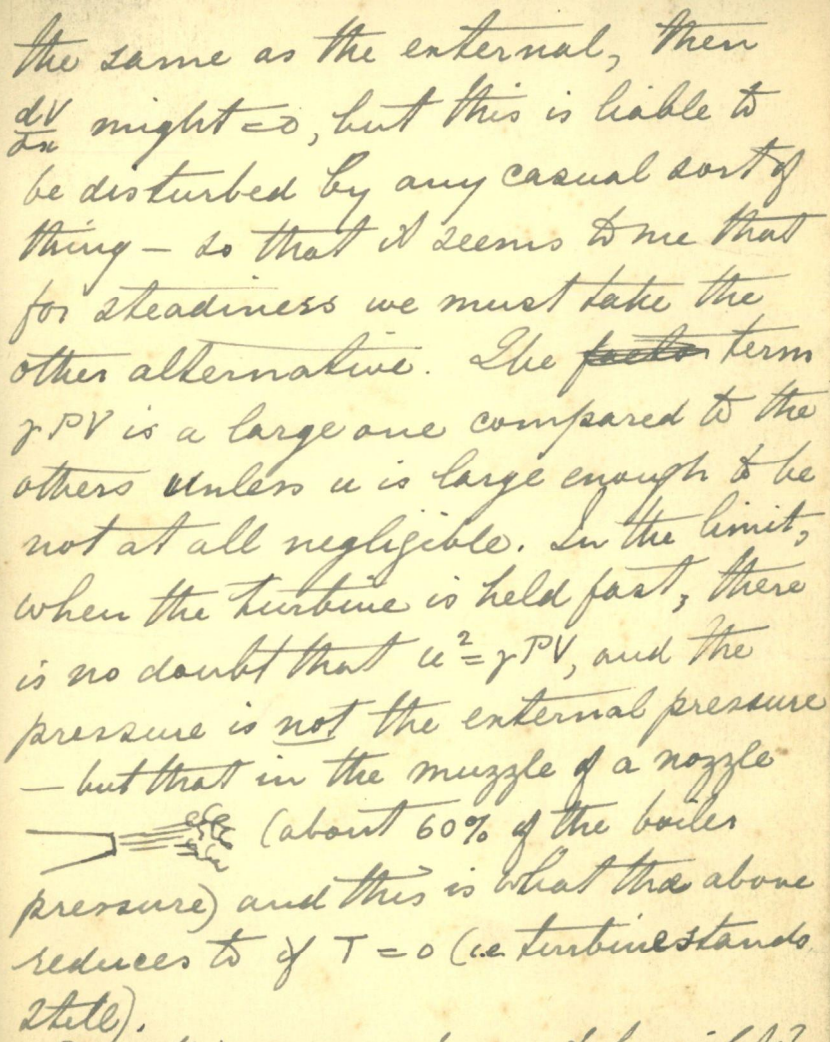 the same as the external, then
dV/dx might = 0, but this is liable to
be disturbed by any casual sort of
thing – so that it seems to me that
for steadiness we must take the
other alternative. The factor term
γPV is a large one compared to the
others unless u is large enough to be
not at all negligible. In the limit,
when the turbine is held fast, there
is no doubt that u² = γPV, and the
pressure is not the external pressure
– but that in the muzzle of a nozzle
(about 60% of the boiler
pressure) and this is what the above
reduces to if T = 0 (i.e turbine stands
still).